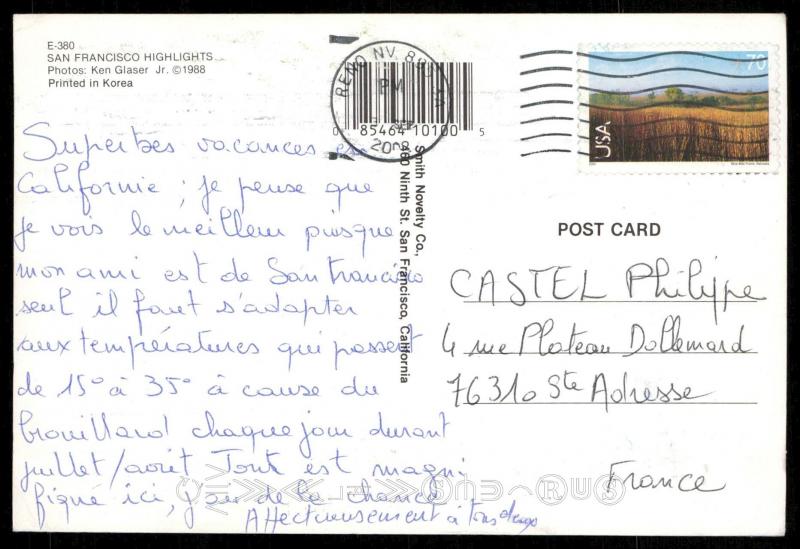 E-380
SAN FRANCISCO HIGHLIGHTS
Photos: Ken Glaser Jr. ©1988
Printed in Korea
RENO NV
PM
0 85464 10100 5
70
USA
Smith Novelty Co.,
460 Ninth St. San Francisco, California
Superbes vacances en
Californie ; je pense que
je vois le meilleur puisque
mon ami est de San Francisco
seul il faut s'adapter
aux températures qui passent
de 15° à 35° à cause du
brouillard chaque jour durant
juillet/août Tout est magni-
fique ici, j'ai de la chance
Affectueusement à tous deux
POST CARD
CASTEL Philippe
4 rue Plateau Dollemard
76310 Ste Adresse
France